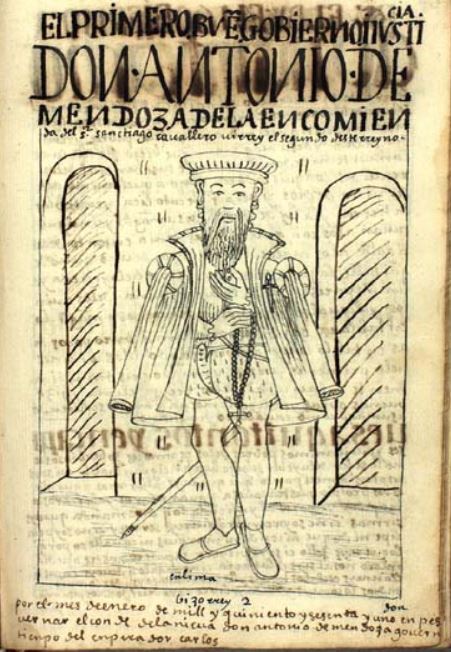 EL PRIMERO BVĒ GOBIERNO I IVSTI
CIA.
DON·ANTONIO·DE
MENDOZA DE LA ENCOMIEN
da del s.r sanctiago cavallero virrey el segundo deste rreyno
en lima
bizorrey 2
don
por el mes de enero de mill y quiniento y sesenta y uno en pes
uernar el conde de la nieua don antonio de mendoza gouer
tienpo del enperador carlos